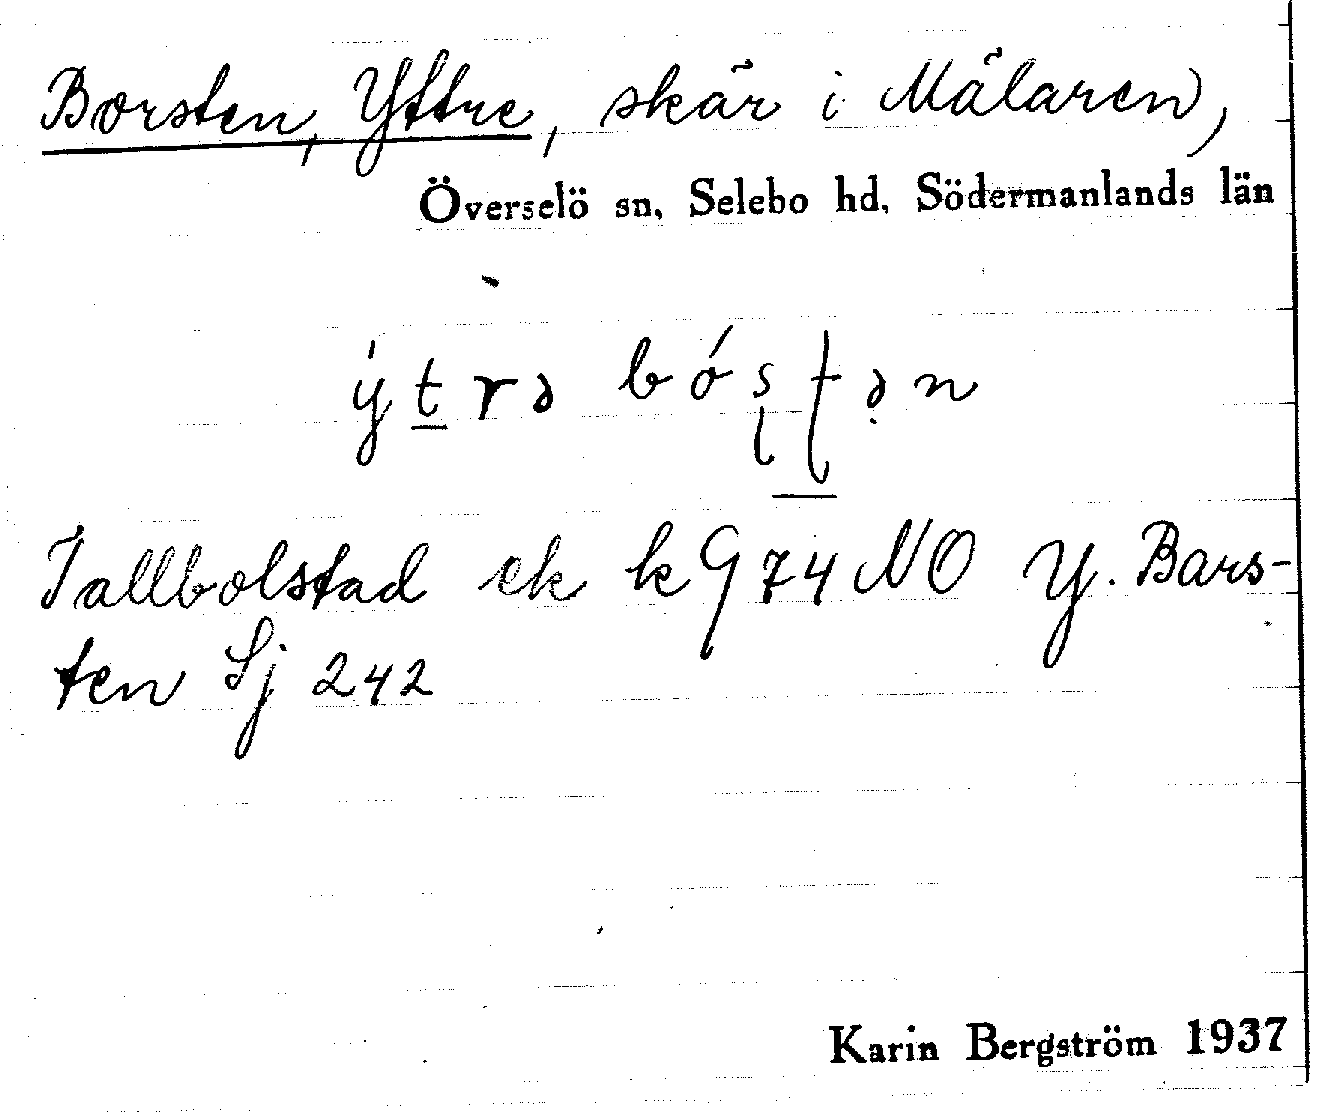 Borsten, Yttre, skär i Mälaren,
Överselö sn, Selebo hd, Södermanlands län
ý t r ə b ó ʂ ʈ ə̣ n
Tallbolstad ek k G 74 NO Y. Bars-
ten Sj 242
Karin Bergström 1937